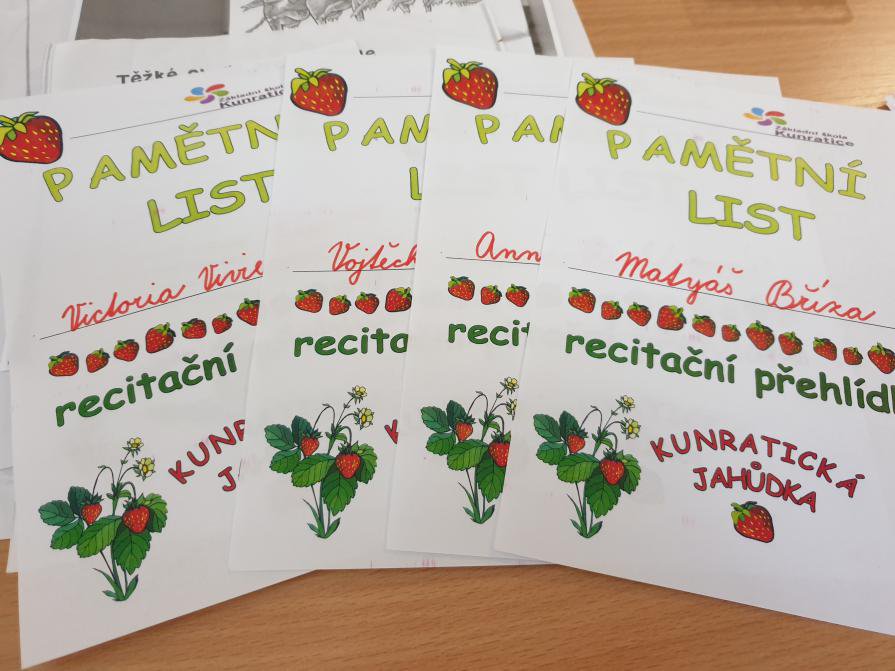 Těžké
Základní škola
Kunratice
PAMĚTN
LIST
Victoria Vivie
recitační
KUNR
JA
PAM
L
Vojtěch
recita
K
PAM
Ann
recit
Základní škola
Kunratice
PAMĚTNÍ
LIST
Matyáš Bříza
recitační přehlídk
KUNRATICKÁ
JAHŮDKA